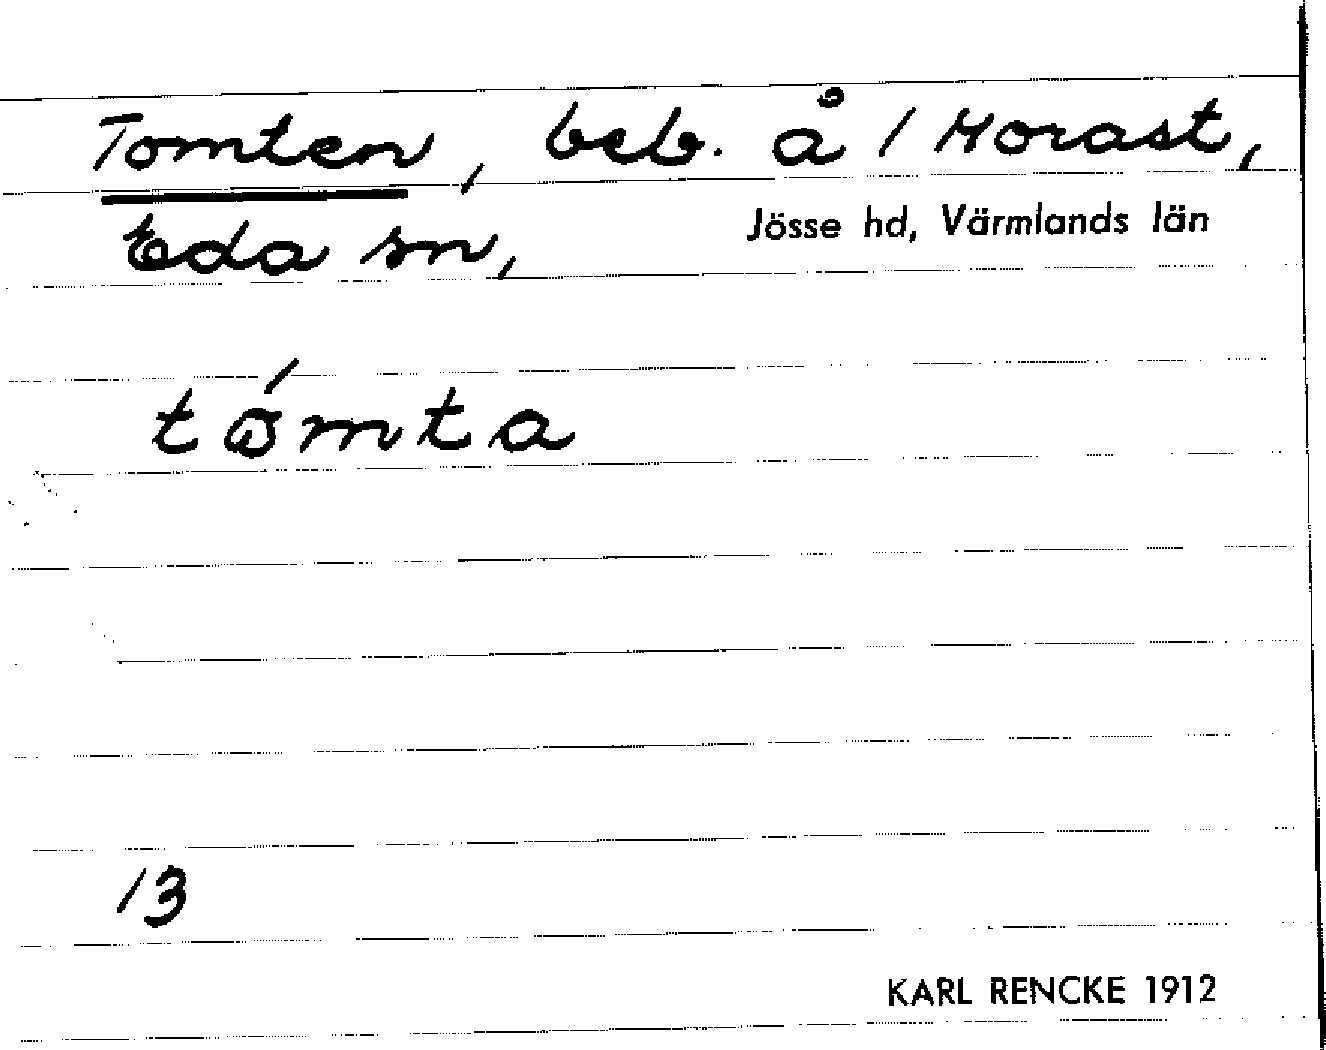 Tomten, beb. å 1 Morast,
Eda sn, Jösse hd, Värmlands län
13
KARL RENCKE 1912